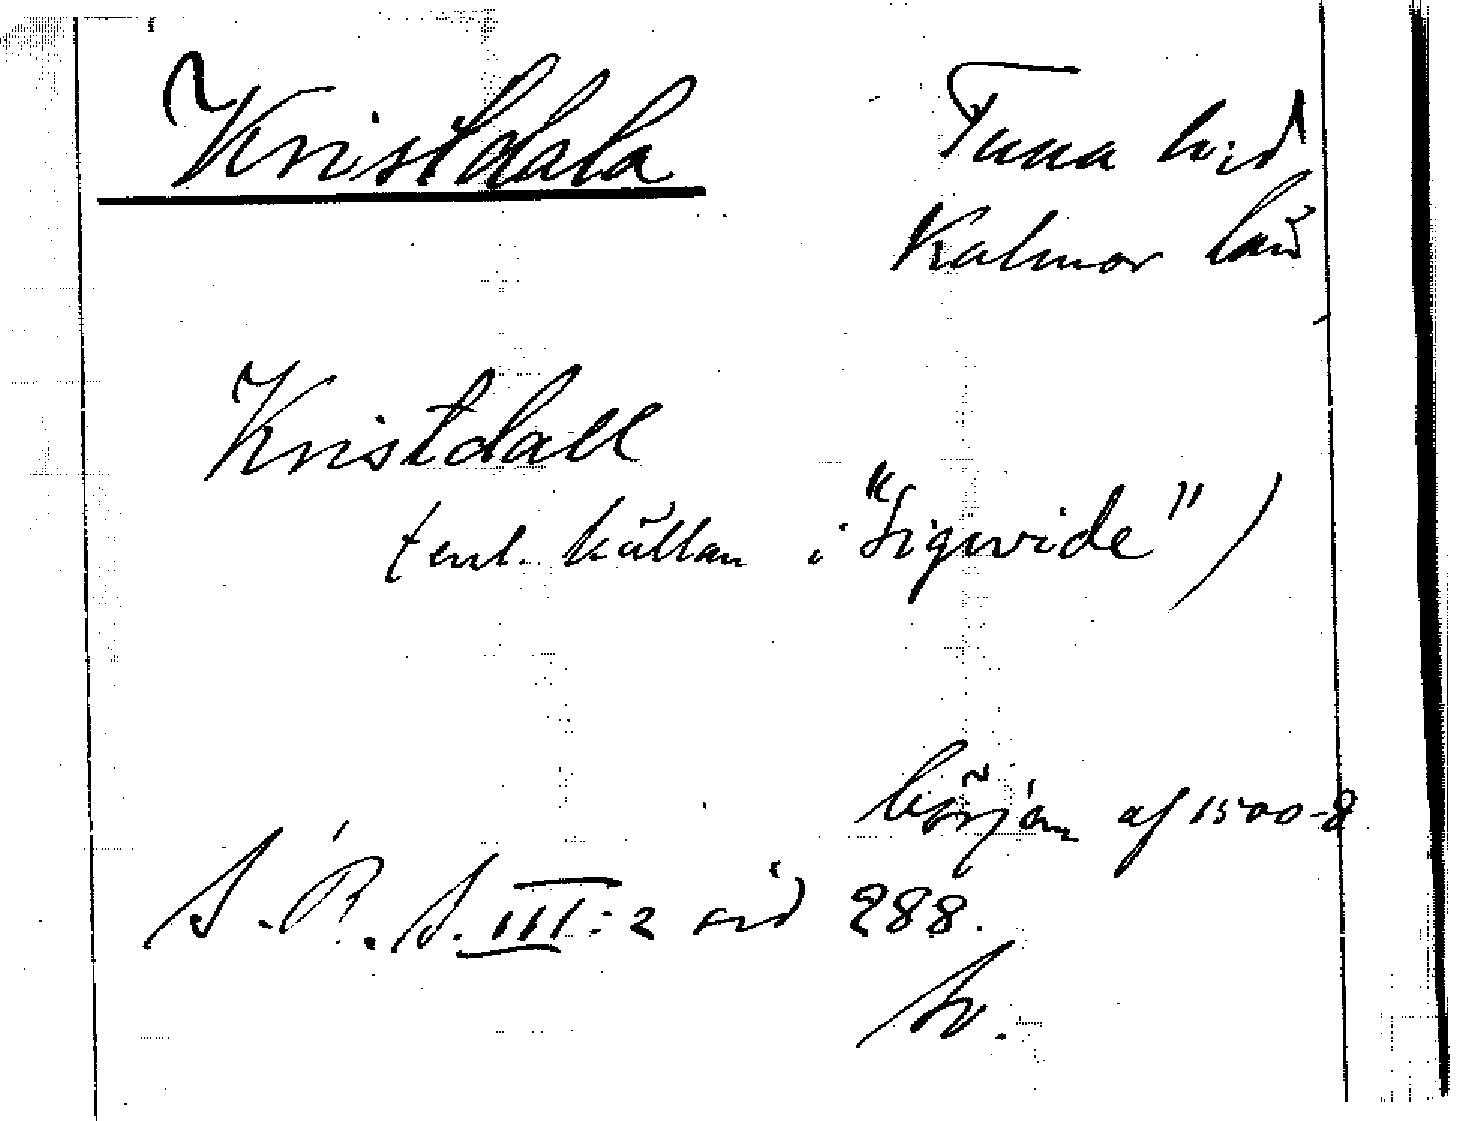 Kristdala
Tuna h:d
Kalmar län
Kristdall
(enl. källan i "Sigwide")
början af 1500-t
S.R.S. III:2 sid 288.
Sv.